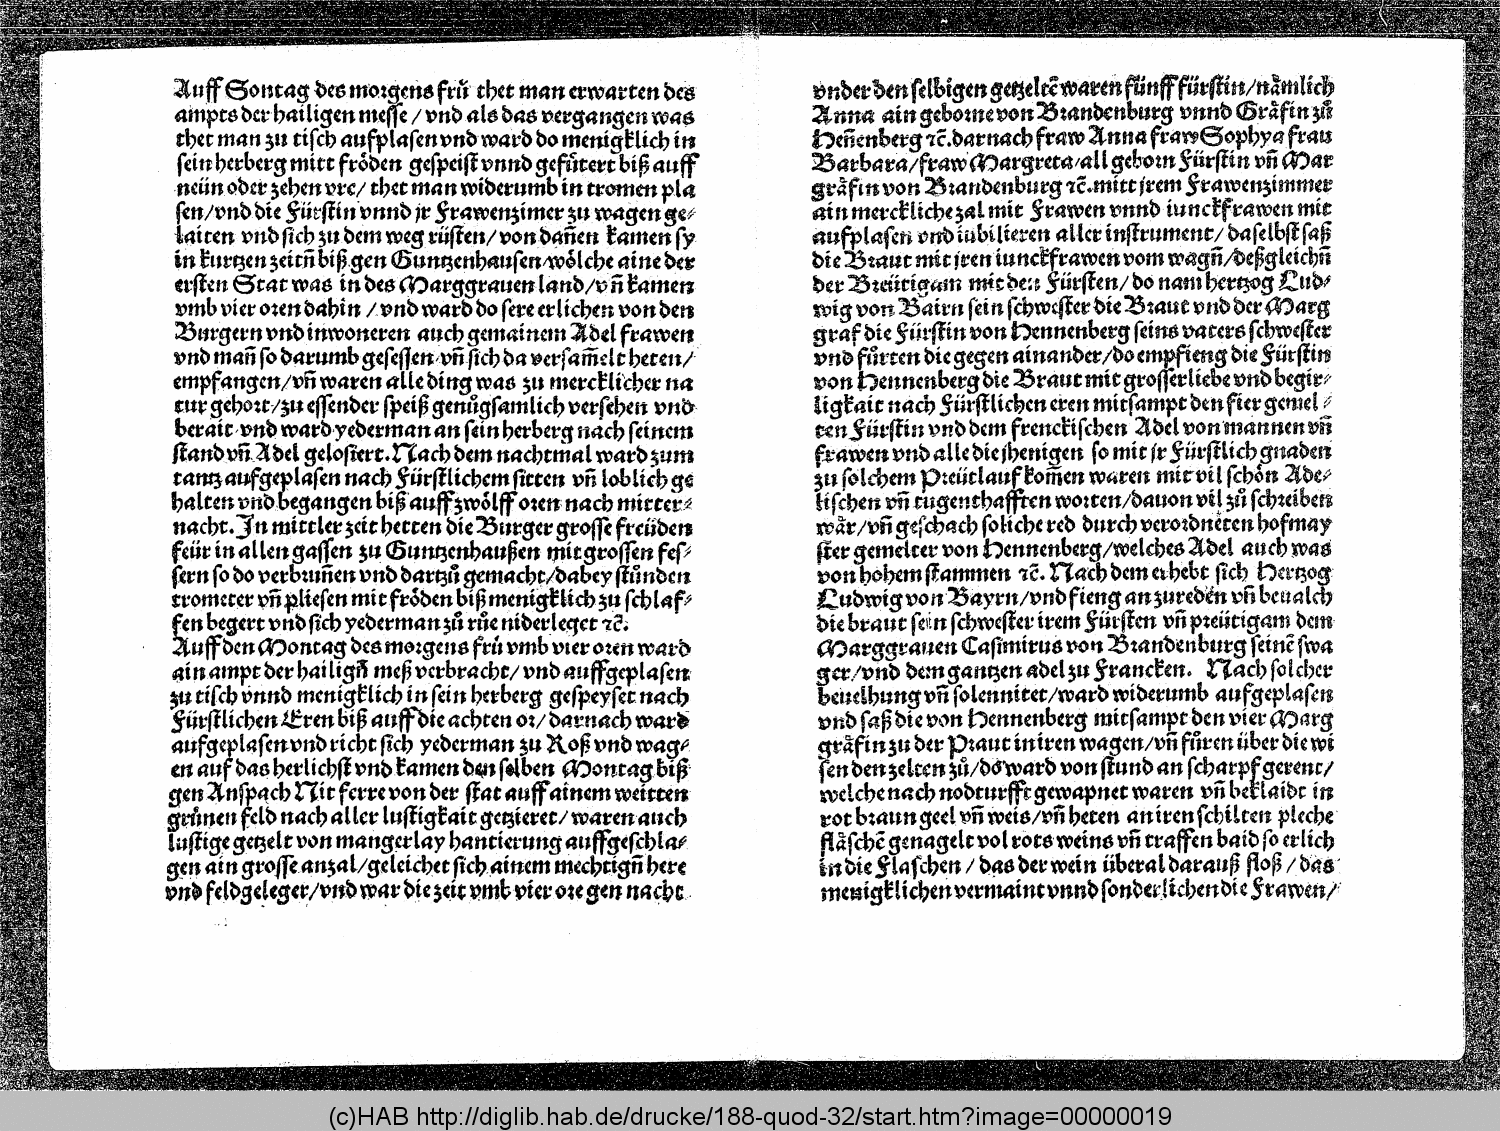 Auff Sontag des morgens frů thet man erwarten des
ampts der hailigen messe / vnd als das vergangen was
thet man zu tisch aufplasen vnd ward do menigklich in
sein herberg mitt frôden gespeist vnnd gefůtert biß auff
neün oder zehen vre/ thet man widerumb in tromen pla
sen/vnd die Fürstin vnnd jr Frawenzimer zu wagen ge⸗
laiten vnd sich zu dem weg rüsten/von dañen kamen sy
in kurtzen zeitñ biß gen Guntzenhausen/wôlche aine der
ersten Stat was in des Marggrauen land/vñ kamen
vmb vier oren dahin / vnd ward do sere erlichen von den
Burgern vnd inwoneren auch gemainem Adel frawen
vnd mañ so darumb gesessen vñ sich da versam̃elt heten/
empfangen/vñ waren alle ding was zu mercklicher na
tur gehort/zu essender speiß genůgsamlich versehen vnd
berait vnd ward yederman an sein herberg nach seinem
stand vñ Adel gelosiert. Nach dem nachtmal ward zum
tantz aufgeplasen nach Fürstlichem sitten vñ loblich ge
halten vnd begangen biß auff zwôlff oren nach mitter⸗
nacht. In mittler zeit hetten die Burger grosse freüden
feür in allen gassen zu Guntzenhaußen mit grossen fes⸗
sern so do verbrunen vnd dartzů gemacht/dabey stůnden
trometer vñ pliesen mit frôden biß menigklich zu schlaf⸗
fen begert vnd sich yederman zů růe niderleget ⁊c̃.
Auff den Montag des morgens frů vmb vier oren ward
ain ampt der hailigñ meß verbracht/ vnd auffgeplasen
zu tisch vnnd menigklich in sein herberg gespeyset nach
Fürstlichen Eren biß auff die achten or/ darnach ward
aufgeplasen vnd richt sich yederman zu Roß vnd wag⸗
en auf das herlichst vnd kamen den selben Montag biß
gen Anspach Nit ferre von der stat auff ainem weitten
grůnen feld nach aller lustigkait getzieret/ waren auch
lustige getzelt von mangerlay hantierung auffgeschla⸗
gen ain grosse anzal/geleichet sich ainem mechtigñ here
vnd feldgeleger/vnd war die zeit vmb vier ore gen nacht
vnder den selbigen getzeltẽ waren fünff fürstin/nåmlich
Anna ain geborne von Brandenburg vnnd Gråfin zů
Heñenberg ⁊c̃. darnach fraw Anna fraw Sophya frau
Barbara/fraw Margreta/all geborn Fürstin vñ Mar
gråfin von Brandenburg ⁊c̃. mitt jrem Frawenzimmer
ain merckliche zal mit Frawen vnnd iunckfrawen mit
aufplasen vnd iubilieren aller instrument/ daselbst saß
die Braut mit jren iunckfrawen vom wagñ/deßgleichñ
der Breütigam mit den Fürsten/ do nam hertzog Lud⸗
wig von Bairn sein schwester die Braut vnd der Marg
graf die Fürstin von Hennenberg seins vaters schwester
vnd fůrten die gegen ainander/do empfieng die Fürstin
von Hennenberg die Braut mit grosser liebe vnd begir⸗
ligkait nach Fürstlichen eren mitsampt den fier gemel⸗
ten Fürstin vnd dem frenckischen Adel von mannen vñ
frawen vnd alle die jhenigen so mit jr Fürstlich gnaden
zu solchem Preütlauf kom̃en waren mit vil schôn Ade⸗
lischen vñ tugenthafften worten/dauon vil zů schreiben
wår/vñ geschach soliche red durch verordneten hofmay
ster gemelter von Hennenberg/welches Adel auch was
von hohem stammen ⁊c̃. Nach dem erhebt sich Hertzog
Ludwig von Bayrn/vnd fieng an zureden vñ beualch
die braut sein schwester irem Fürsten vñ preütigam dem
Marggrauen Casimirus von Brandenburg seinẽ swa
ger/vnd dem gantzen adel zu Francken. Nach solcher
beuelhung vñ solennitet/ward widerumb aufgeplasen
vnd saß die von Hennenberg mitsampt den vier Marg
gråfin zu der Praut in iren wagen/vñ fůren über die wi
sen den zelten zů/do ward von stund an scharpf gerent/
welche nach nodturfft gewapnet waren vñ beklaidt in
rot braun geel vñ weis/vñ heten an iren schilten pleche
flåschẽ genagelt vol rots weins vñ traffen baid so erlich
in die Flaschen / das der wein überal darauß floß / das
menigklichen vermaint vnnd sonderlichen die Frawen/
(c)HAB http://diglib.hab.de/drucke/188-quod-32/start.htm?image=00000019